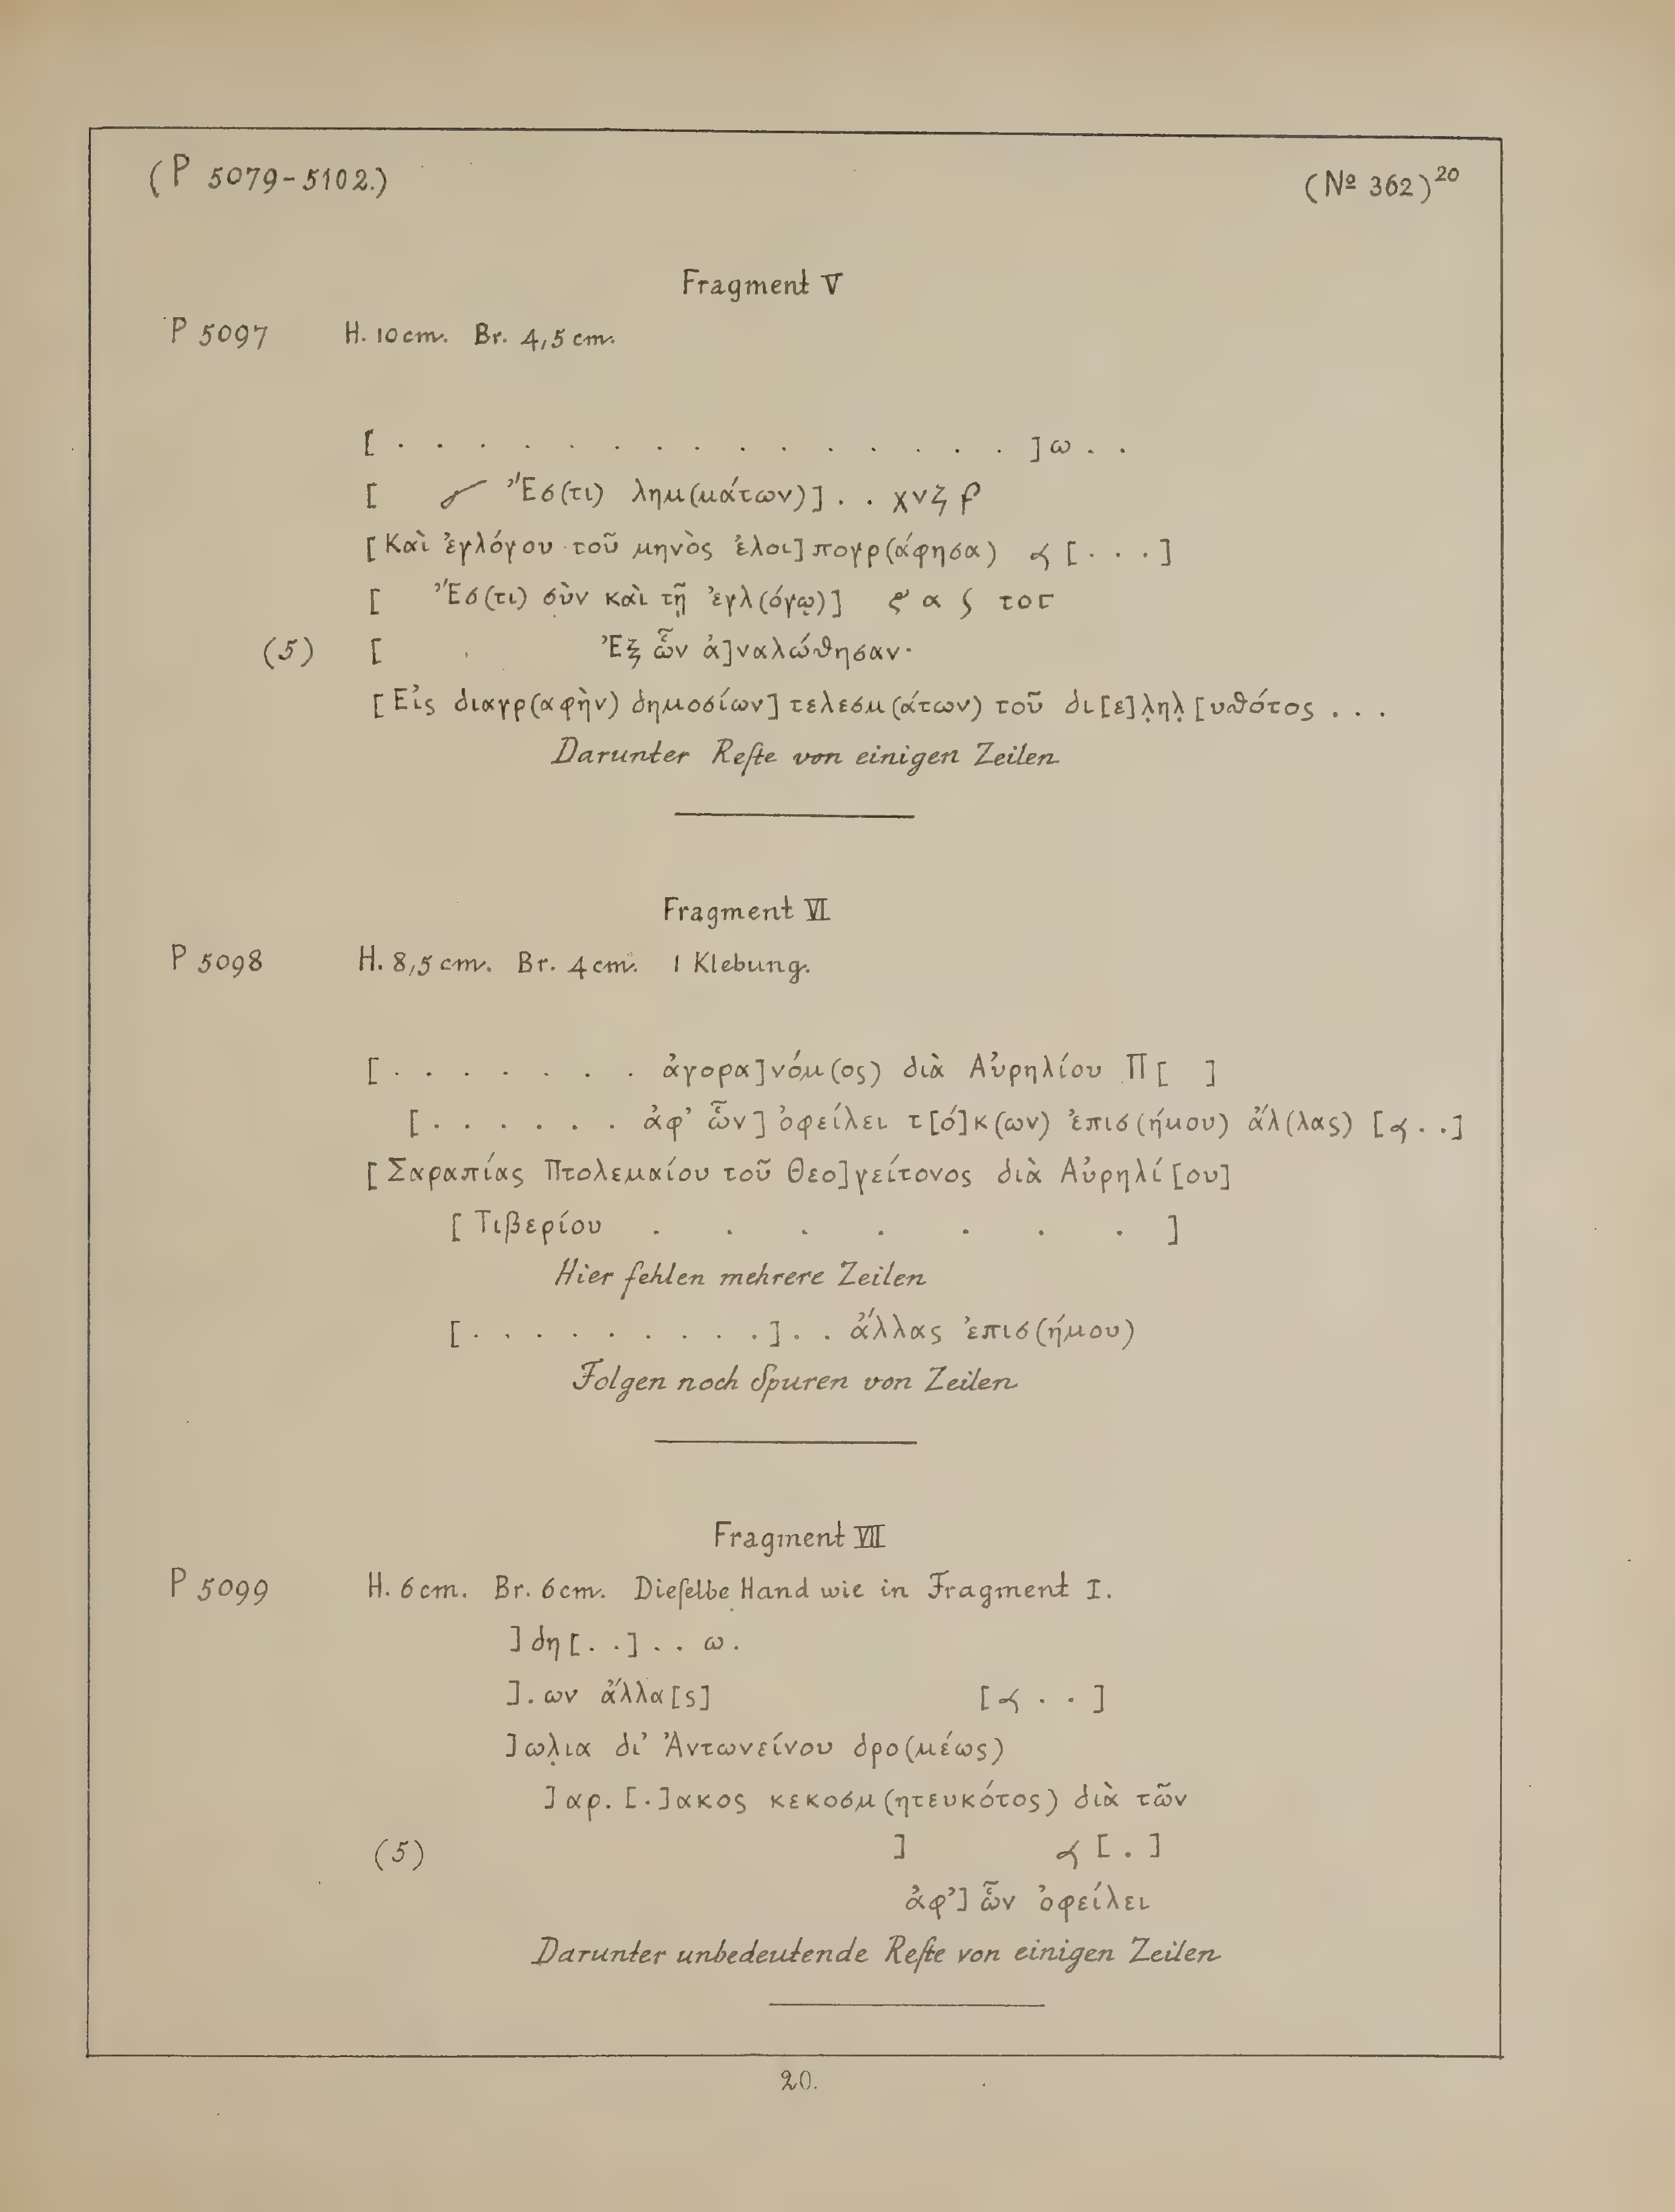 (P 5079-5102.) (Nº 362)20
Fragment V
P 5097 H. 10 cm. Br. 4,5 cm.
[ . . . . . . . . . . . . . . . ] ω . .
[ Ἔσ(τι) λημ(μάτων)] . . χνζ
[Καὶ ἐγλόγου τοῦ μηνὸς ἐλοι]πογρ(άφησα) [. . .]
[ Ἔσ(τι) σὺν καὶ τῇ ἐγλ(όγῳ)] α
(5) [ Ἐξ ὧν ἀ]ναλώθησαν·
[Εἰς διαγρ(αφὴν) δημοσίων] τελεσμ(άτων) τοῦ δι[ε]λ̣ηλ̣[υθότος . . .
Darunter Reſte von einigen Zeilen
Fragment VI
P 5098 H. 8,5 cm. Br. 4 cm. 1 Klebung.
[ . . . . . . . ἀγορα]νόμ(ος) διὰ Αὐρηλίου Π[ ]
[ . . . . . . ἀφ’ ὧν] ὀφείλει τ[ό]κ(ων) ἐπισ(ήμου) ἄλ(λας) [ . .]
[Σαραπίας Πτολεμαίου τοῦ Θεο]γείτονος διὰ Αὐρηλί[ου]
[Τιβερίου . . . . . . . ]
Hier fehlen mehrere Zeilen
[ . . . . . . . . . ] . . ἄλλας ἐπισ(ήμου)
Folgen noch Spuren von Zeilen
Fragment VII
P 5099 H. 6 cm. Br. 6 cm. Dieſelbe Hand wie in Fragment I.
]δη[. .] . . ω .
] . ων ἄλλα[ς] [ . . ]
]ωλ̣ια δι’ Ἀντωνείνου δρο(μέως)
]αρ. [.]ακος κεκοσμ(ητευκότος) διὰ τῶν
(5) ] [ . ]
ἀφ’] ὧν ὀφείλει
Darunter unbedeutende Reſte von einigen Zeilen
20.